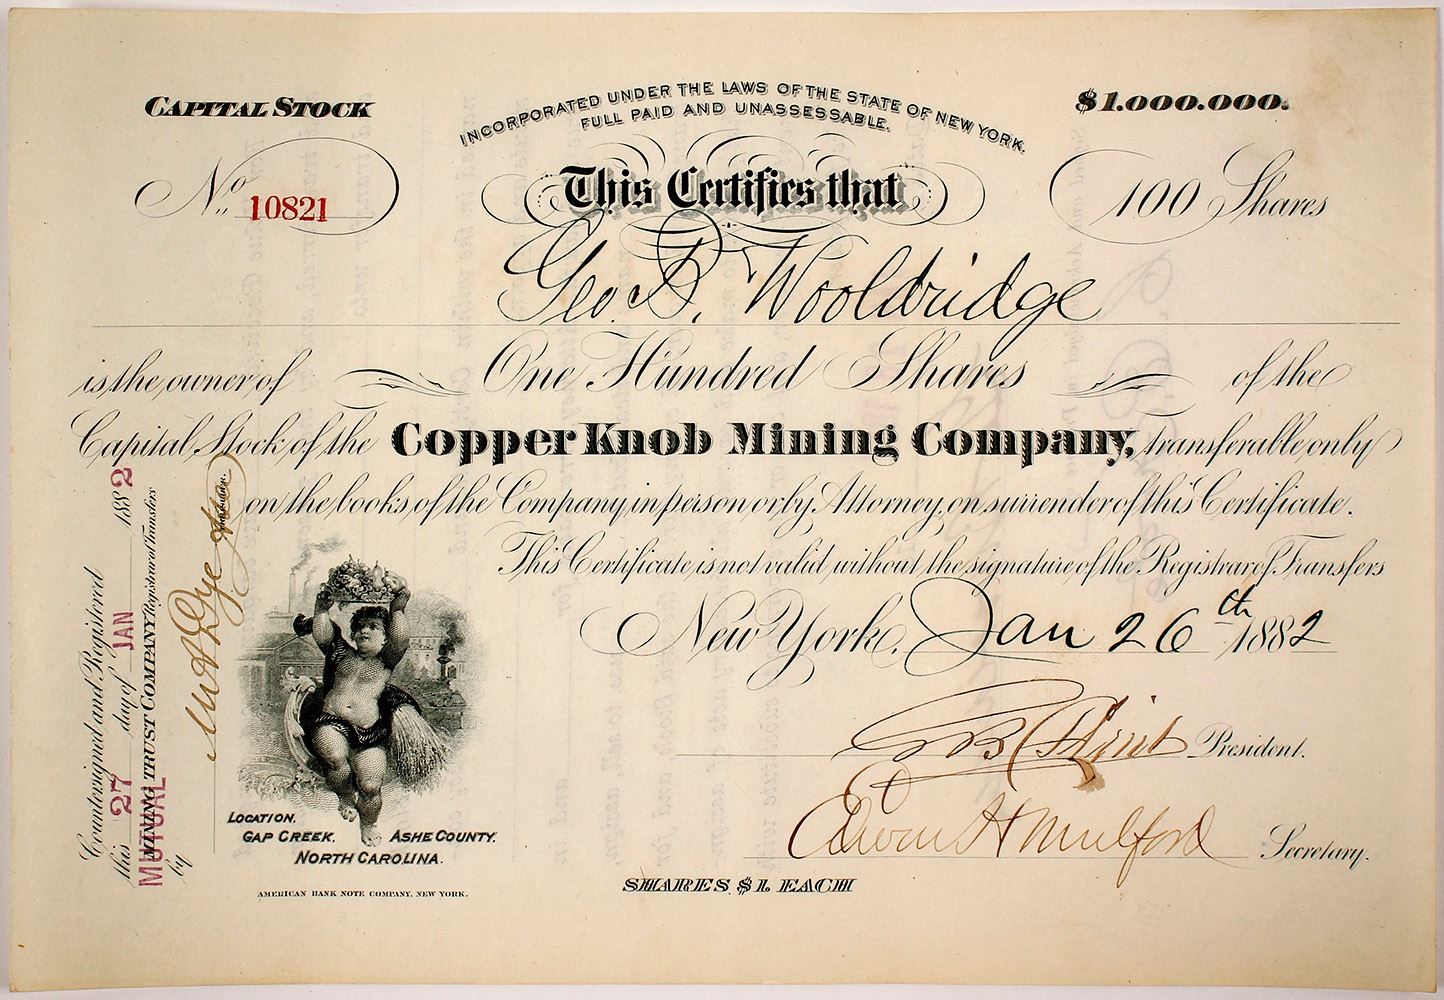 CAPITAL STOCK
INCORPORATED UNDER THE LAWS OF THE STATE OF NEW YORK.
FULL PAID AND UNASSESSABLE.
$1.000.000.
No. 10821
This Certifies that
100 Shares
Geo. B. Wooldridge
is the owner of One Hundred Shares of the
Capital Stock of the Copper Knob Mining Company, transferable only
on the books of the Company in person or by Attorney, on surrender of this Certificate.
This Certificate is not valid without the signature of the Registrar of Transfers
New York, Jan 26th 1882
President.
Edwin H Mulford Secretary.
SHARES $1. EACH
Countersigned and Registered
this 27 day of JAN 1882
MUTUAL MINING TRUST COMPANY Registrar of Transfers
by
LOCATION,
GAP CREEK, ASHE COUNTY,
NORTH CAROLINA.
AMERICAN BANK NOTE COMPANY, NEW YORK.